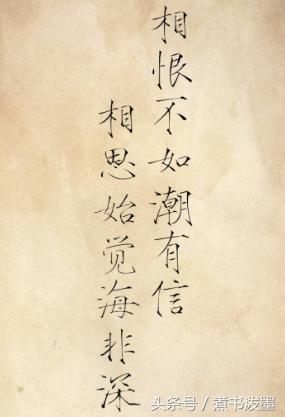 相恨不如潮有信
相思始觉海非深
头条号／煮书泼墨